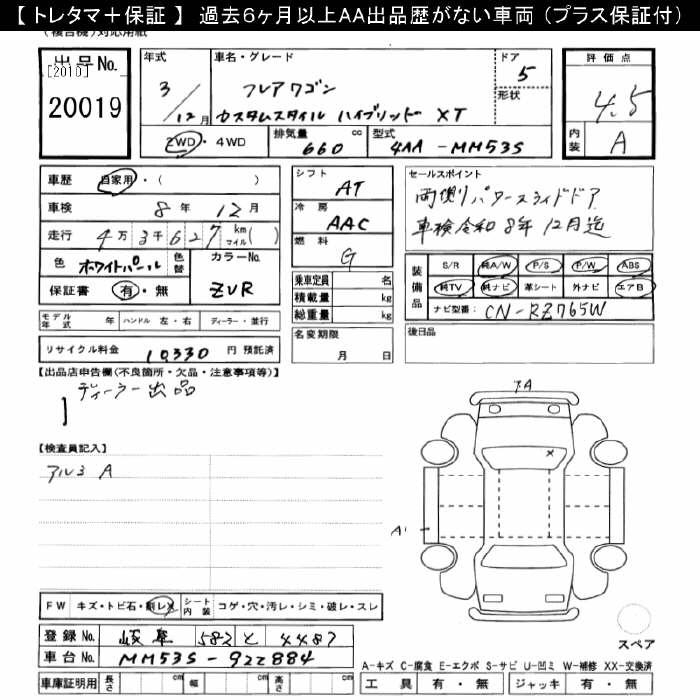 【 トレタマ＋保証 】 過去6ヶ月以上AA出品歴がない車両 (プラス保証付)
(複合機)対応用紙
出品No.
[2010]
20019
年式
3／12月
車名・グレード
フレアワゴン
カスタムスタイル ハイブリッド XT
ドア
5
形状
評価点
4.5
内装
A
2WD・4WD
排気量
660 cc
型式
4AA-MM53S
車歴 自家用・( )
車検 8年 12月
走行 4万3千627 km(マイル)
色 ホワイトパール
色替
カラーNo.
ZVR
保証書 有・無
シフト
AT
冷房
AAC
燃料
G
乗車定員 名
積載量 kg
総重量 kg
セールスポイント
両側パワースライドドア
車検令和8年12月迄
装備品
S/R 純A/W P/S P/W ABS
純TV 純ナビ 革シート 外ナビ エアB
ナビ型番: CN-RZ765W
モデル年式 年 ハンドル 左・右 ディーラー・並行
名変期限
月 日
後日品
リサイクル料金 10330 円 預託済
【出品店申告欄(不良箇所・欠品・注意事項等)】
ディーラー出品
【検査員記入】
アルミ A
アA
×
A'
FW キズ・トビ石・削レ×
シート内装 コゲ・穴・汚レ・シミ・破レ・スレ
登録No. 岐阜 582 と 4487
車台No. MM53S-922884
車庫証明用 長さ cm 幅 cm 高さ cm
スペア
A-キズ C-腐食 E-エクボ S-サビ U-凹ミ W-補修 XX-交換済
工具 有・無 ジャッキ 有・無